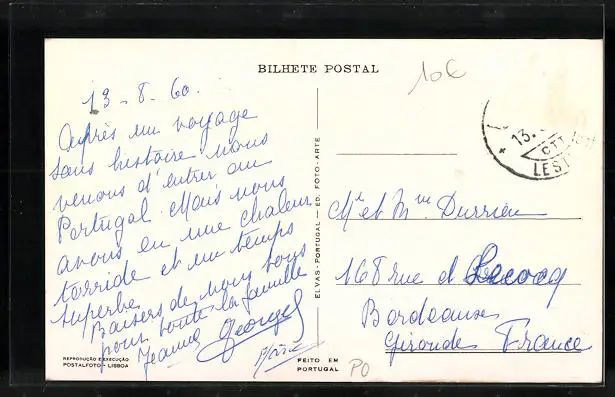 BILHETE POSTAL
10€
13-8-60.
Après un voyage
sans histoire nous
venons d'entrer au
Portugal. Mais nous
avons eu une chaleur
torride et un temps
superbe.
Baisers de nous tous
pour toute la famille
Jeanne Georges
REPRODUÇÃO E EXECUÇÃO
POSTALFOTO - LISBOA
ELVAS - PORTUGAL — ED. FOTO-ARTE
FEITO EM
PORTUGAL
PO
13.
CTT
LEST
Mr et Mme Durrieu
168 rue Lecocq
Bordeaux
Gironde France